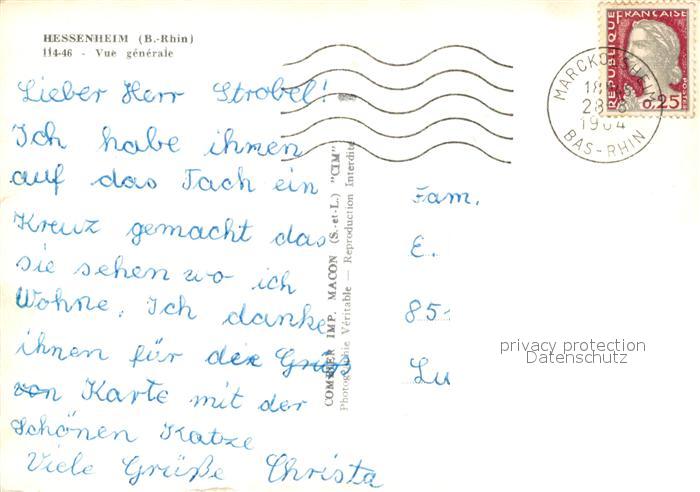 HESSENHEIM (B.-Rhin)
114-46 - Vue générale
Lieber Herr Strobel!
Ich habe ihnen
auf das Tach ein
Kreuz gemacht das
sie sehen wo ich
Wohne. Ich danke
ihnen für die Grüße
von Karte mit der
schönen Katze
Viele Grüße Christa
COMBIER IMP. MACON (S.-et-L.) "CIM"
Photographie Véritable — Reproduction Interdite
REPUBLIQUE FRANÇAISE
0,25
MARCKOLSHEIM
18H
28
1964
BAS-RHIN
Fam.
E.
85-
Lu
privacy protection
Datenschutz